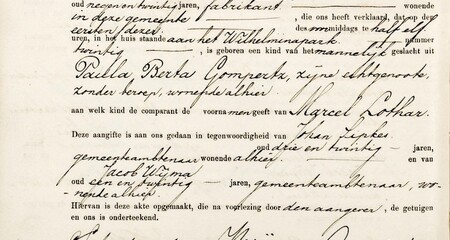 oud negen en twintig jaren, fabrikant wonende
in deze gemeente, die ons heeft verklaard, dat op den
eersten dezer des middags te half elf
uren, in het huis staande aan het Wilhelminapark nummer
twintig, is geboren een kind van het mannelijk geslacht uit
Paula, Berta Gompertz, zijne echtgenoote,
zonder beroep, wonende alhier
aan welk kind de comparant de voornamen geeft van Marcel Lothar.
Deze aangifte is aan ons gedaan in tegenwoordigheid van Johan Zipkes
oud drie en twintig jaren,
gemeenteambtenaar wonende alhier en van
Jacob Wijma
oud een en twintig jaren, gemeenteambtenaar, wo-
nende alhier
Hiervan is deze akte opgemaakt, die na voorlezing door den aangever, de getuigen
en ons is onderteekend.